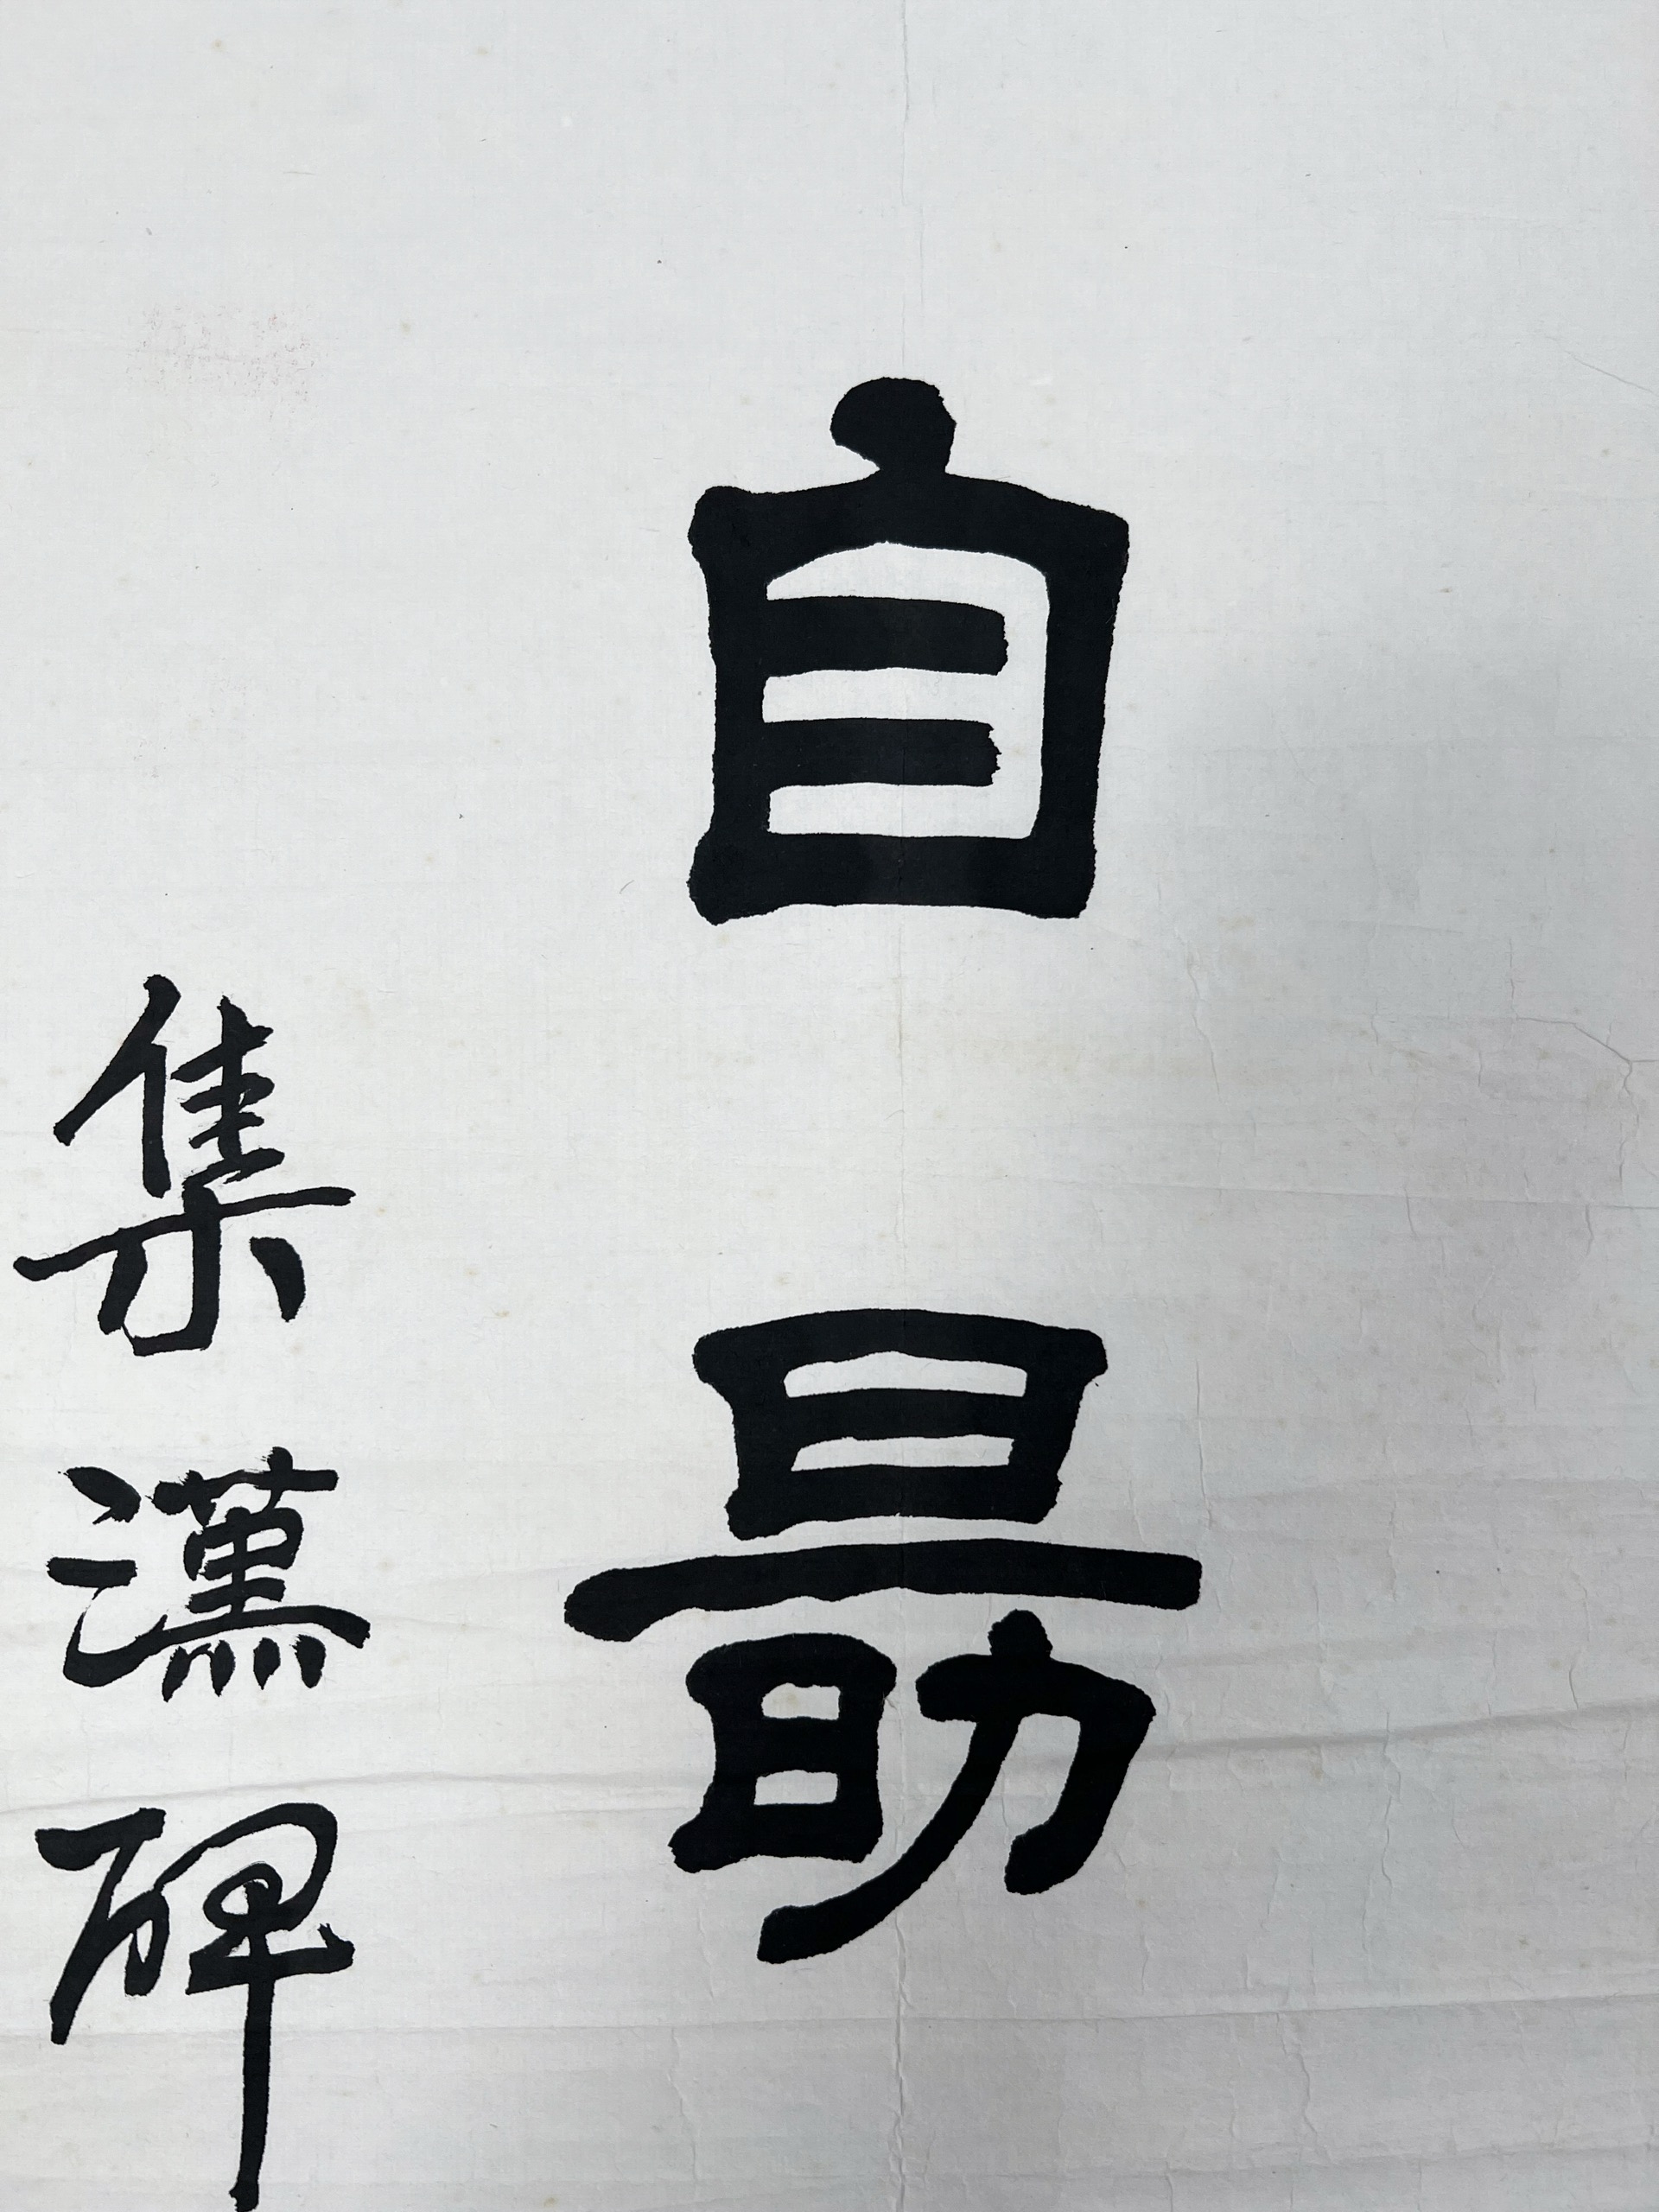 自勗
集漢碑